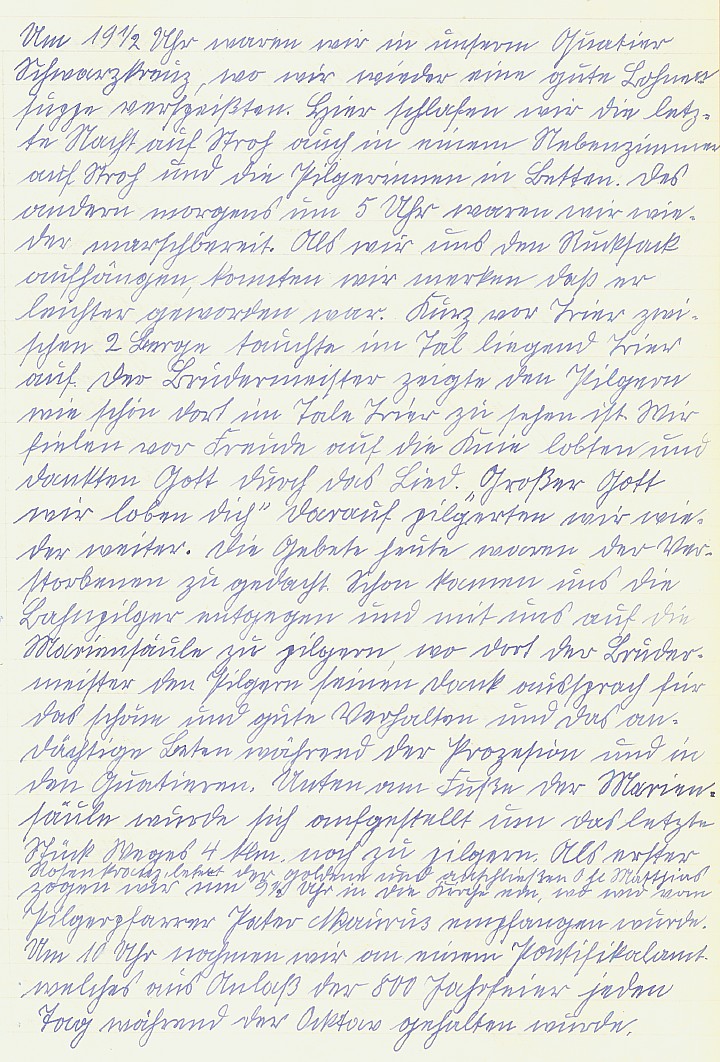 Um 19 1/2 Uhr waren wir in unserm Quatier
Schwarzkreuz, wo wir wieder eine gute Bohnen
suppe verspeißten. Hier schlafen wir die letz-
te Nacht auf Stroh auch in einem Nebenzimmer
auf Stroh und die Pilgerinnen in Betten. Des
andern morgens um 5 Uhr waren wir wie-
der marschbereit. Als wir uns den Rucksack
aufhängen, konnten wir merken daß er
leichter geworden war. Kurz vor Trier zwi-
schen 2 Berge tauchte im Tal liegend Trier
auf. Der Brudermeister zeigte den Pilgern
wie schön dort im Tale Trier zu sehen ist. Wir
fielen vor Freude auf die Knie lobten und
dankten Gott durch das Lied. "Großer Gott
wir loben dich" Darauf pilgerten wir wie-
der weiter. Die Gebete heute waren der Ver-
storbenen zu gedacht. Schon kamen uns die
Bahnpilger entgegen und mit uns auf die
Mariensäule zu pilgern, wo dort der Bruder-
meister den Pilgern seinen Dank aussprach für
das schöne und gute Verhalten und das an-
dächtige Beten während der Prozesion und in
den Quatieren. Unten am Fuße der Marien-
säule wurde sich aufgestellt um das letzte
Stück Weges 4 klm. noch zu pilgern. Als erster
Rosenkranz der goldene und anschließend St. Matthias
zogen wir um 9 1/2 Uhr in die Kirche ein, wo wir vom
Pilgerpfarrer Pater Maurus empfangen wurde.
Um 10 Uhr nahmen wir an einem Pontifikalamt
welches aus Anlaß der 800 Jahrfeier jeden
Tag während der Ocktav gehalten wurde.